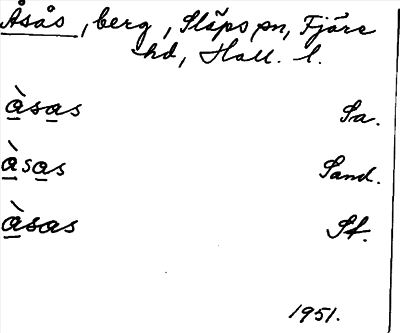 Åsås, berg, Släps sn, Fjäre
hd, Hall. l.
àsas Sa.
àsas Sand.
àsas Sf.
1951.